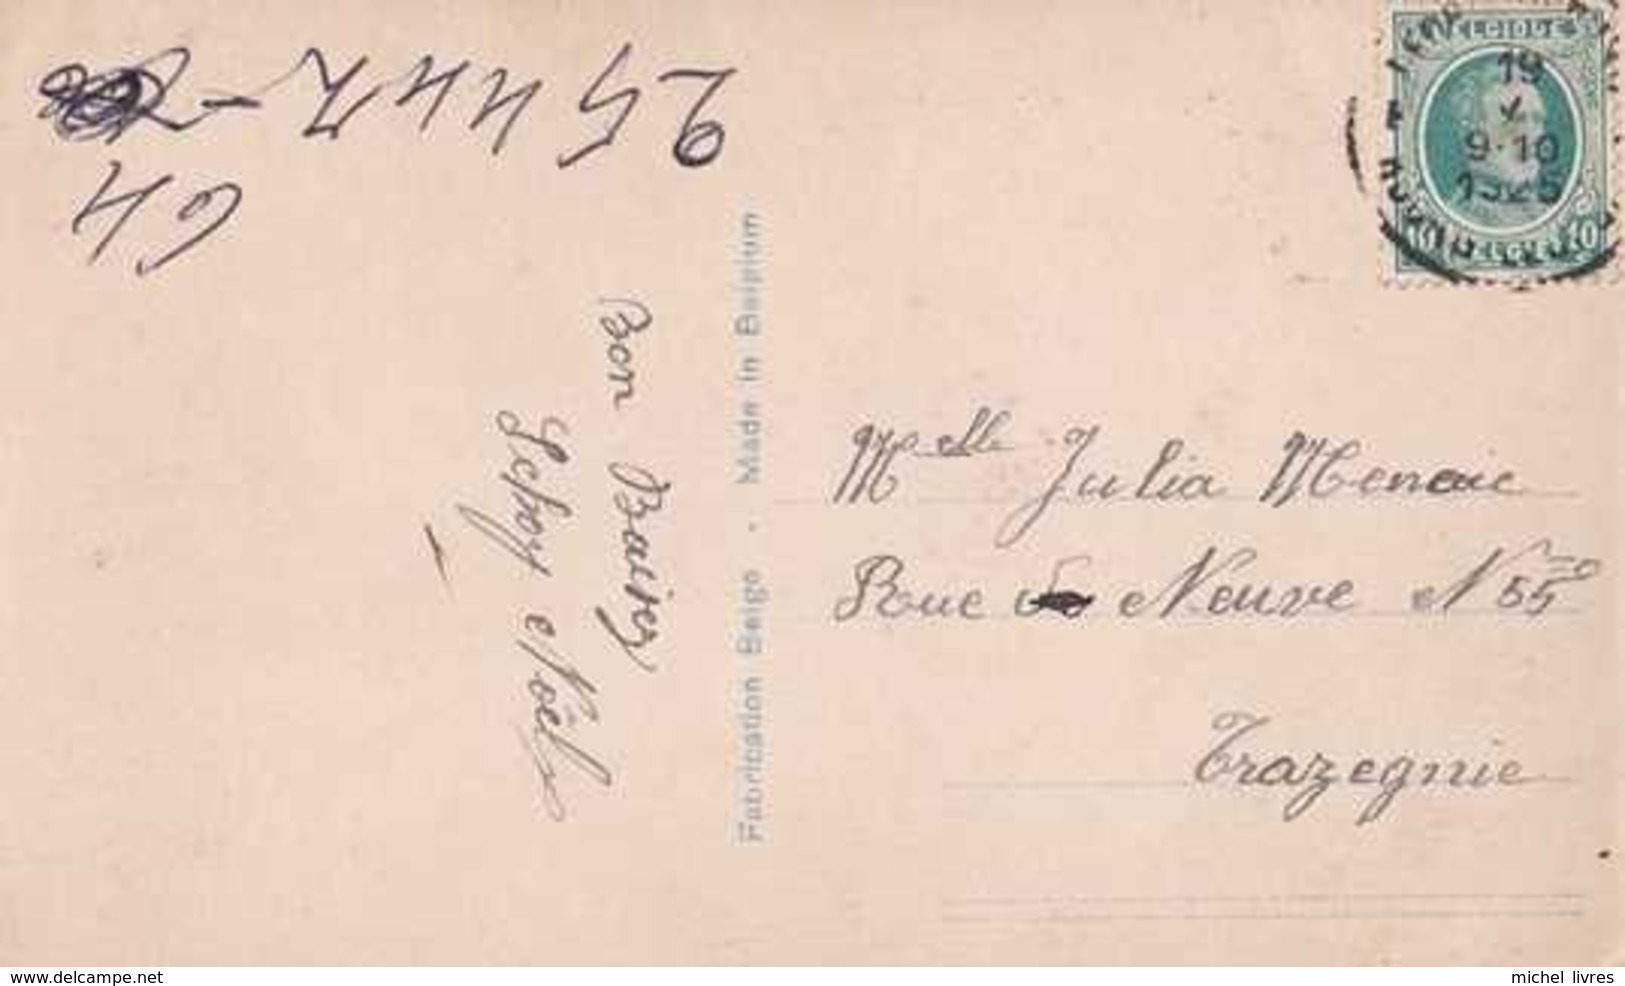 25447-
64
Bon Baiser
Schoy Noël
Fabrication Belge - Made in Belgium
BELGIQUE
19
9-10
1925
10
Melle Julia Menaie
Rue Neuve N° 55
Trazegnie
www.delcampe.net
michel_livres